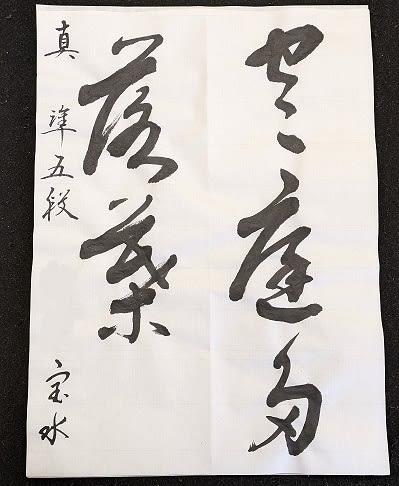 空庭多
落葉
真 準五段 宝水